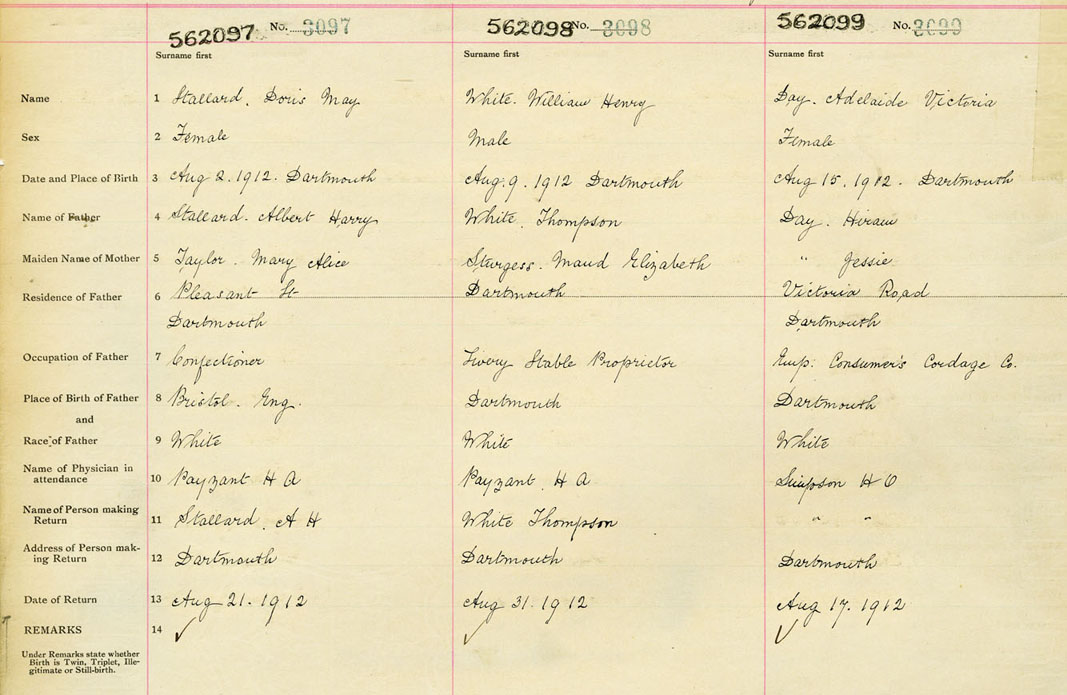 562097 No. 3097 562098 No. 3098 562099 No. 3099
Surname first Surname first Surname first
Name 1 Stallard. Doris May White. William Henry Day. Adelaide Victoria
Sex 2 Female Male Female
Date and Place of Birth 3 Aug 2. 1912. Dartmouth Aug. 9. 1912 Dartmouth Aug 15. 1912. Dartmouth
Name of Father 4 Stallard. Albert Harry White. Thompson Day. Hiram
Maiden Name of Mother 5 Taylor. Mary Alice Sturgess. Maud Elizabeth " Jessie
Residence of Father 6 Pleasant St Dartmouth Victoria Road
Dartmouth Dartmouth
Occupation of Father 7 Confectioner Livery Stable Proprietor Emp. Consumer's Cordage Co.
Place of Birth of Father 8 Bristol. Eng. Dartmouth Dartmouth
and
Race of Father 9 White White White
Name of Physician in
attendance 10 Payzant H A Payzant. H A Simpson H O
Name of Person making
Return 11 Stallard. A H White Thompson " "
Address of Person mak-
ing Return 12 Dartmouth Dartmouth Dartmouth
Date of Return 13 Aug 21. 1912 Aug 31. 1912 Aug 17. 1912
REMARKS 14 ✓ ✓ ✓
Under Remarks state whether
Birth is Twin, Triplet, Ille-
gitimate or Still-birth.